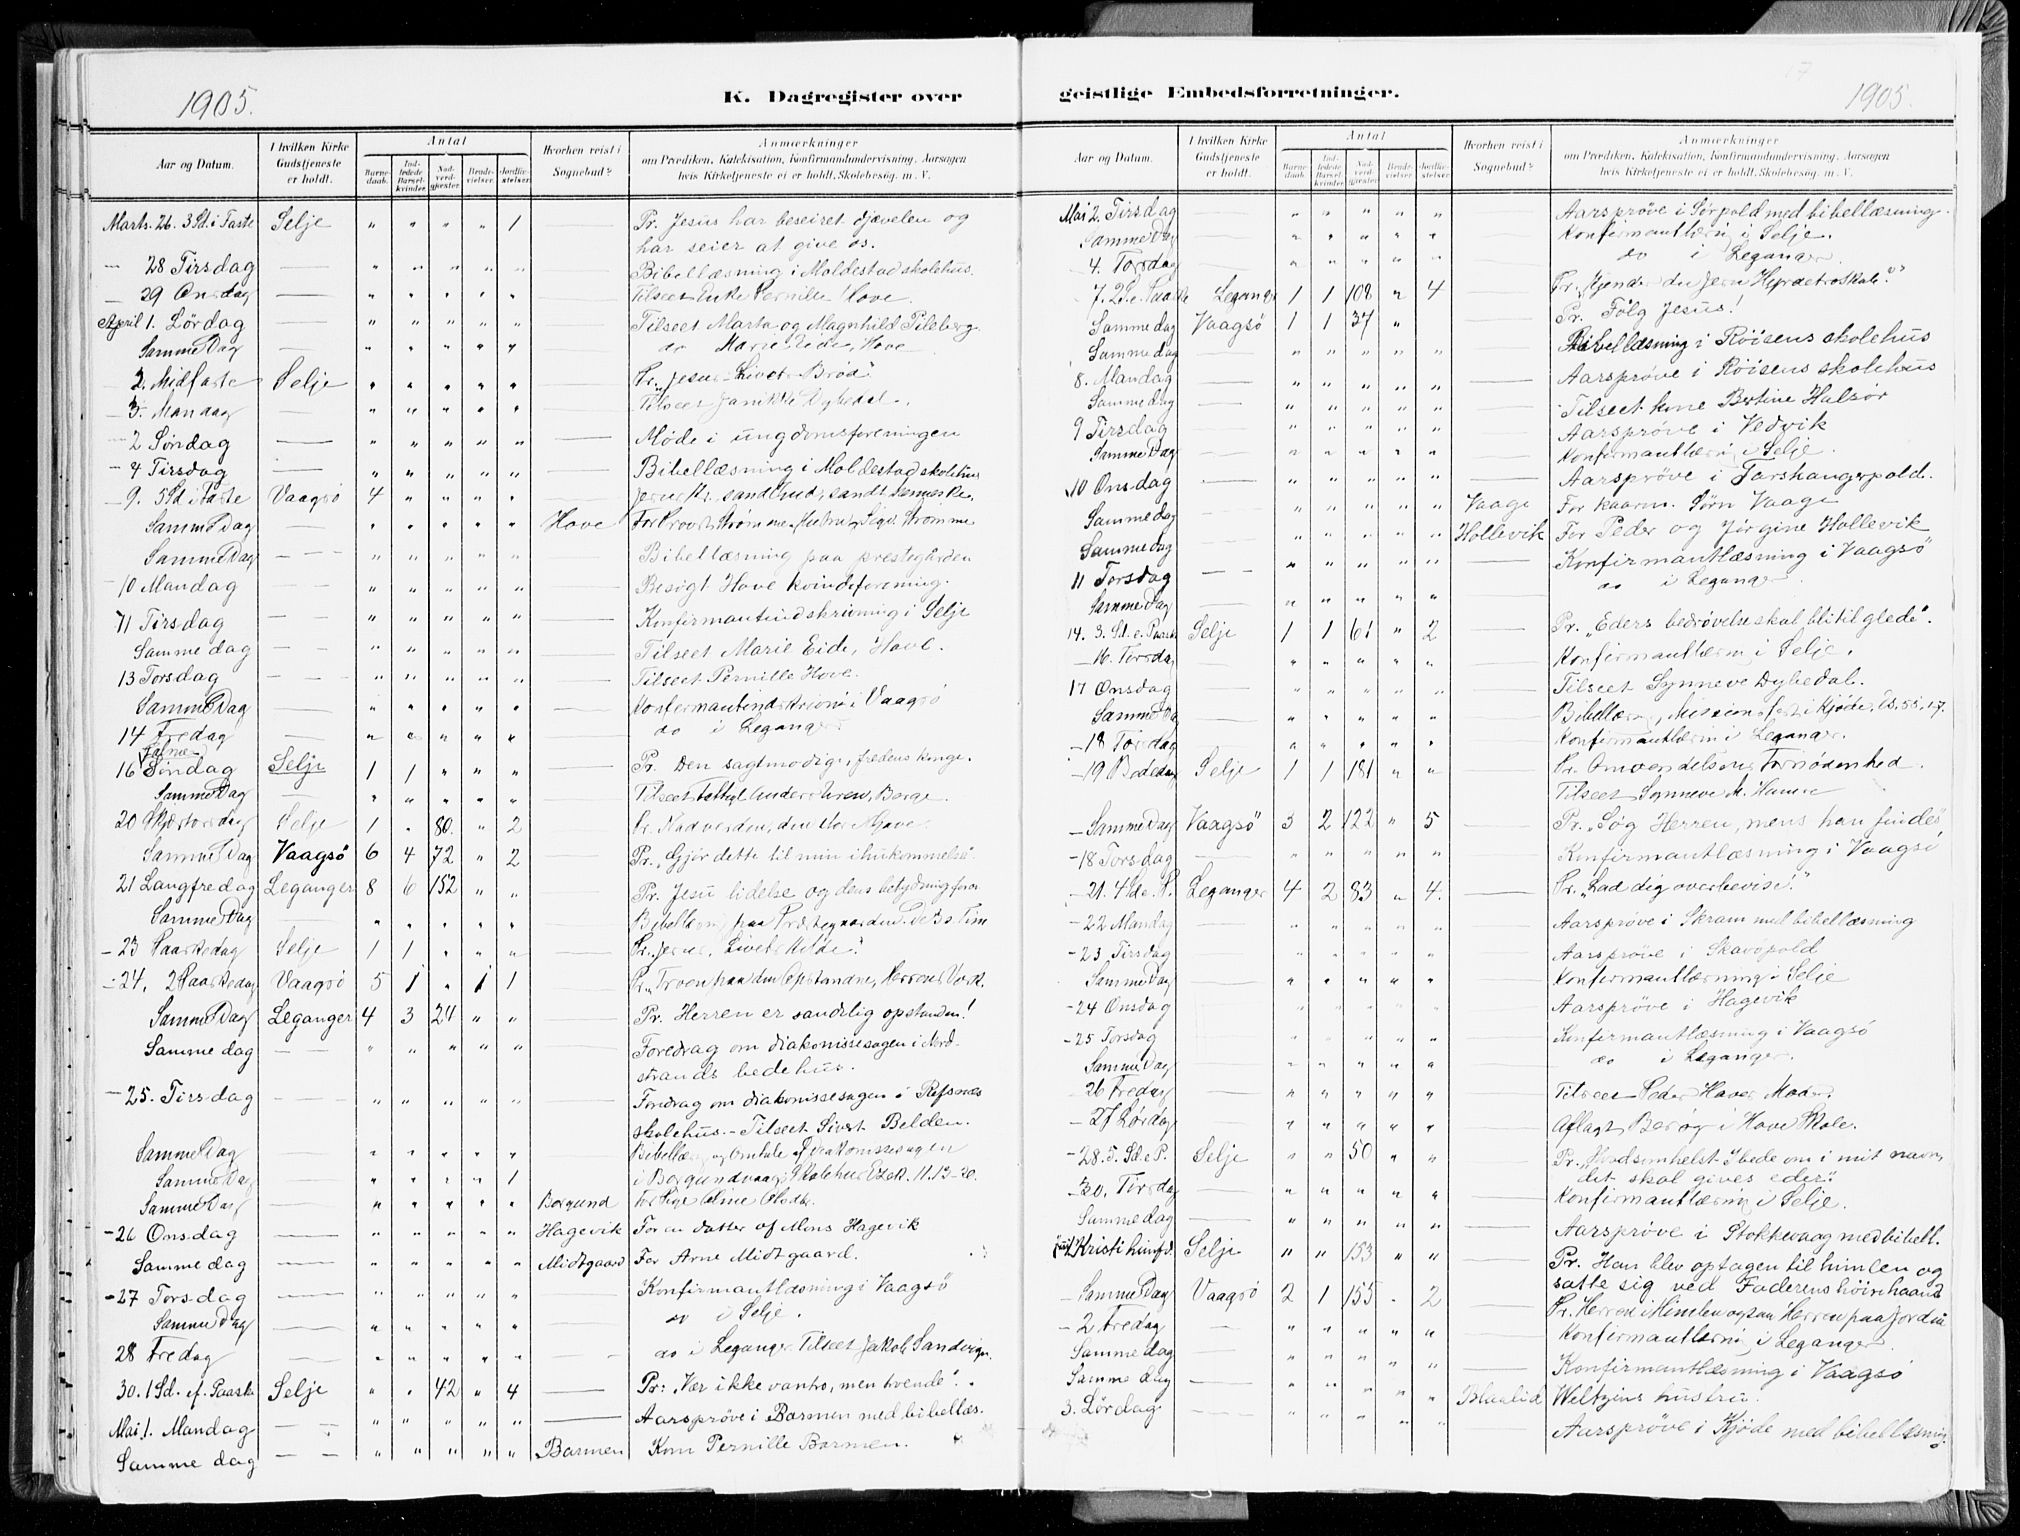 1905.
K. Dagregister over
Aar og Datum.
I hvilken Kirke Gudstjeneste er holdt.
Antal
Barnedaab.
Indledede Barselkvinder.
Nadverdgjester.
Brudevielser.
Jordfæstelser.
Hvorhen reist i Sognebud?
Anmærkninger
om Prædiken, Katekisation, Konfirmandundervisning, Aarsagen
hvis Kirketjeneste ei er holdt, Skolebesøg. m. V.
Marts. 26. 3 Sd. i Faste Selje " " " " 1 — Pr. Jesus har beseiret djævelen og
har seier at give os.
— 28 Tirsdag — " " " " " — Bibellæsning i Moldestad skolehus.
— 29 Onsdag — " " " " " — Tilseet Enke Pernille Hove.
April 1. Lördag — " " " " " — Tilseet Marta og Magnhild Fileberg
Samme Dag — " " " " " — do Marie Eide, Hove
2. Midfaste Selje " " " " " — Pr. "Jesus – Livets Brød".
— 3. Mandag — " " " " " — Tilseet Janikke Dybedal.
— 2 Søndag — " " " " " — Møde i ungdomsforeningen
— 4 Tirsdag — " " " " " — Bibellæsning i Moldestad skolehus
— 9. 5 Sd i Faste Vaagsö 4 " " " "
Samme Dag — " " " " " Hove For Provst Strömme
Samme Dag — " " " " " — Bibellæsning paa prestegården
10 Mandag — " " " " " — Besøgt Hove kvindeforening.
11 Tirsdag — " " " " " — Konfirmantindskrivning i Selje
Samme dag — " " " " " — Tilseet Marie Eide, Hove.
13 Torsdag — " " " " " — Tilseet Pernille Hove.
Samme Dag — " " " " " — Konfirmantindskrivn. i Vaagsö
14 Fredag — " " " " " — do i Leganger
16 Palme Søndag Selje 1 1 " " " — Pr. Den sagtmodige, fredens konge.
Samme Dag — " " " " " — Tilseet
20 Skjærtorsdag Selje 1 . 80. " 2 — Pr. Nadverden, den store Gave.
Samme Dag Vaagsö 6 4 72 " 2 — Pr. "Gjør dette til min ihukommelse"
21 Langfredag Leganger 8 6 152 " " — Pr. Jesu lidelse og dens betydning for os
Samme Dag — " " " " " — Bibellæsn. paa Prestegaarden.
— 23 Paaskedag Selje 1 1 " " " — Pr. Jesus, Livets Kilde.
— 24. 2 Paaskedag Vaagsö 5 1 " 1 1 — Pr. "Troen paa den Opstandne, Herrens Værk.
Samme Dag Leganger 4 3 24 " " — Pr. Herren er sandelig opstanden!
Samme dag — " " " " " — Foredrag om diakonissesagen i Nord-
strands bedehus.
— 25. Tirsdag — " " " " " — Foredrag om diakonissesagen i Refsnæs
skolehus. – Tilseet Sivert Belden.
Samme Dag — " " " " " — Bibellæs. og Omtale af Diakonissesagen
Samme Dag — " " " " 1 — i Borgundvaag Skolehus Ezek. 11.13–20.
Samme Dag — " " " " " Borgund
— 26 Onsdag — " " " " " Hagevik For en datter af Mons Hagevik
Samme dag — " " " " " Midtgaard For Arne Midtgaard.
— 27 Torsdag — " " " " " — Konfirmantlæsning i Vaagsö
Samme Dag — " " " " " — do i Selje.
28 Fredag — " " " " " — do i Leganger Tilseet Jakob Sandvign.
30. 1 Sd. ef. Paaske Selje " " 42 " 4 — Pr: "Vær ikke vantro, men troende".
Mai 1. Mandag — " " " " " — Aarsprøve i Barmen med bibellæs.
Samme dag — " " " " " Barmen Kom Pernille Barmen.
geistlige Embedsforretninger.
1905.
17
Aar og Datum.
I hvilken Kirke Gudstjeneste er holdt.
Antal
Barnedaab.
Indledede Barselkvinder.
Nadverdgjester.
Brudevielser.
Jordfæstelser.
Hvorhen reist i Sognebud?
Anmærkninger
om Prædiken, Katekisation, Konfirmandundervisning, Aarsagen
hvis Kirketjeneste ei er holdt, Skolebesøg. m. V.
Mai 2. Tirsdag — " " " " " — Aarsprøve i Sørpold med bibellæsning.
Samme Dag — " " " " " — Konfirmantlæsn. i Selje.
4. Torsdag — " " " " " — do i Leganger.
7. 2 S. e. Paaske Leganger 1 1 108 " 4 —
Samme dag Vaagsö 1 1 37 " — Pr. Følg Jesus!
Samme dag — " " " " " — Bibellæsning i Röisens skolehus
8. Mandag — " " " " " — Aarsprøve i Röisens skolehus
Samme dag — " " " " " — Tilseet kone Bertine Halsör
9 Tirsdag — " " " " " — Aarsprøve i Vedvik
Samme Dag — " " " " " — Konfirmantlæsn. i Selje.
10 Onsdag — " " " " " — Aarsprøve i Farshangerpold.
Samme dag — " " " " " Vaage For kaarm. Jörn Vaage
Samme dag — " " " " " Hollevik For Peder og Jörgine Hollevik
11 Torsdag — " " " " " — Konfirmantlæsning i Vaagsö
Samme Dag " " " " " do i Leganger.
14. 3. Sd. e. Paaske Selje 1 1 61 " 2 — Pr. "Eders bedrøvelse skal bli til glede".
— 16. Tirsdag — " " " " " — Konfirmantlæsn. i Selje.
17 Onsdag — " " " " " — Tilseet Synneve Dybedal.
Samme Dag — " " " " " — Bibellæsn., Missionsfest i Kjöde, Es. 55, 17.
— 18 Torsdag — " " " " " — Konfirmantlæsn. i Leganger.
— 19 Bededag Selje 1 1 181 " " — Pr. Omvendelsens Fornødenhed.
Tilseet Synneve M. Hamre
— Samme Dag Vaagsö 3 2 122 " 5 — Pr. "Søg Herren, mens han findes"
— 18 Torsdag — " " " " " — Konfirmantlæsning i Vaagsö
— 21. 4 S. e. P. Leganger 4 2 83 " 4. — Pr. "Lad dig overbevise."
— 22 Mandag — " " " " " — Aarsprøve i Skram med bibellæsning
— 23 Tirsdag — " " " " " — Aarsprøve i Skavöpold
Samme Dag — " " " " " — Konfirmantlæsning i Selje
— 24 Onsdag — " " " " " — Aarsprøve i Hagevik
— 25 Torsdag — " " " " " — Konfirmantlæsning i Vaagsö
Samme Dag — " " " " " — do i Leganger.
26 Fredag — " " " " " — Tilseet Peder Haves Moder.
— 27 Lørdag — " " " " " — Aflagt Besøg i Hove Skole.
— 28. 5. Sd. e. P. Selje " " 50 " " — Pr. "Hvadsomhelst I bede om i mit navn,
det skal gives eder."
— 30. Tirsdag — " " " " " — Konfirmantlæsning i Selje.
Samme dag — " " " " " — Aarsprøve i Stokkevaag med bibell.
Juni 1 Kristi himfd. Selje " " 153 " " — Pr. Han blev optagen til himlen og
satte sig ved Faderens höire haand
Samme Dag Vaagsö 2 1 155 . 2 — Pr. Herren i Himlen ogsaa Herren paa Jorden
— 2 Fredag — " " " " " — Konfirmantlæsn. i Leganger
Samme dag — " " " " " — Konfirmantlæsning i Vaagsö
Samme dag — " " " " " Blaalid Weltziens hustru.
3. Lördag — " " " " " — Aarsprøve i Kjöde med bibellæsning.